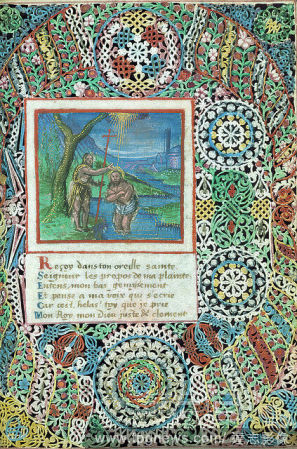 Reçoy dans ton oreille sainte
Seigneur les propos de ma plainte
Entens, mon bas gemissement
Et pense a ma voix qui s'ecrie
Car c'est, helas! toy que je prie
Mon Roy mon Dieu juste & clement